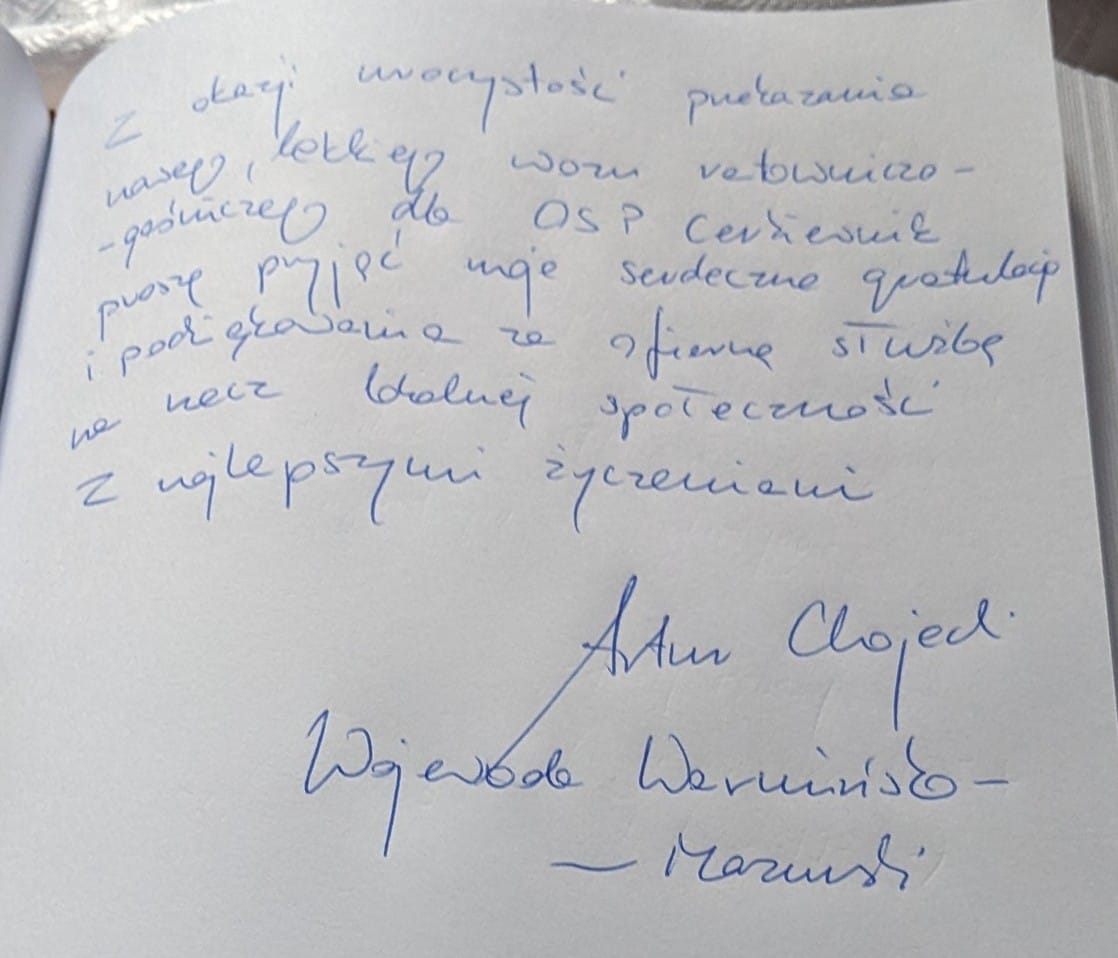 Z okazji uroczystości przekazania
nowego, lekkiego wozu ratowniczo-
-gaśniczego dla OSP Cerkiewnik
proszę przyjąć moje serdeczne gratulacje
i podziękowania za ofiarną służbę
na rzecz lokalnej społeczności
Z najlepszymi życzeniami
Artur Chojecki
Wojewoda Warmińsko-
- Mazurski